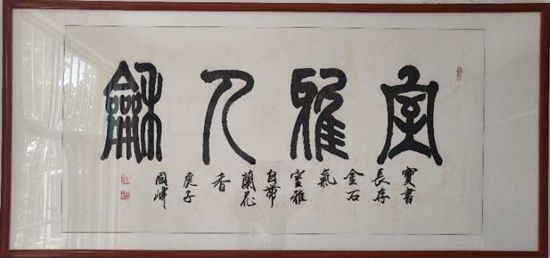 室雅人龢
寶書
長存
金石
氣
室雅
自帶
蘭花
香
庚子
國峰